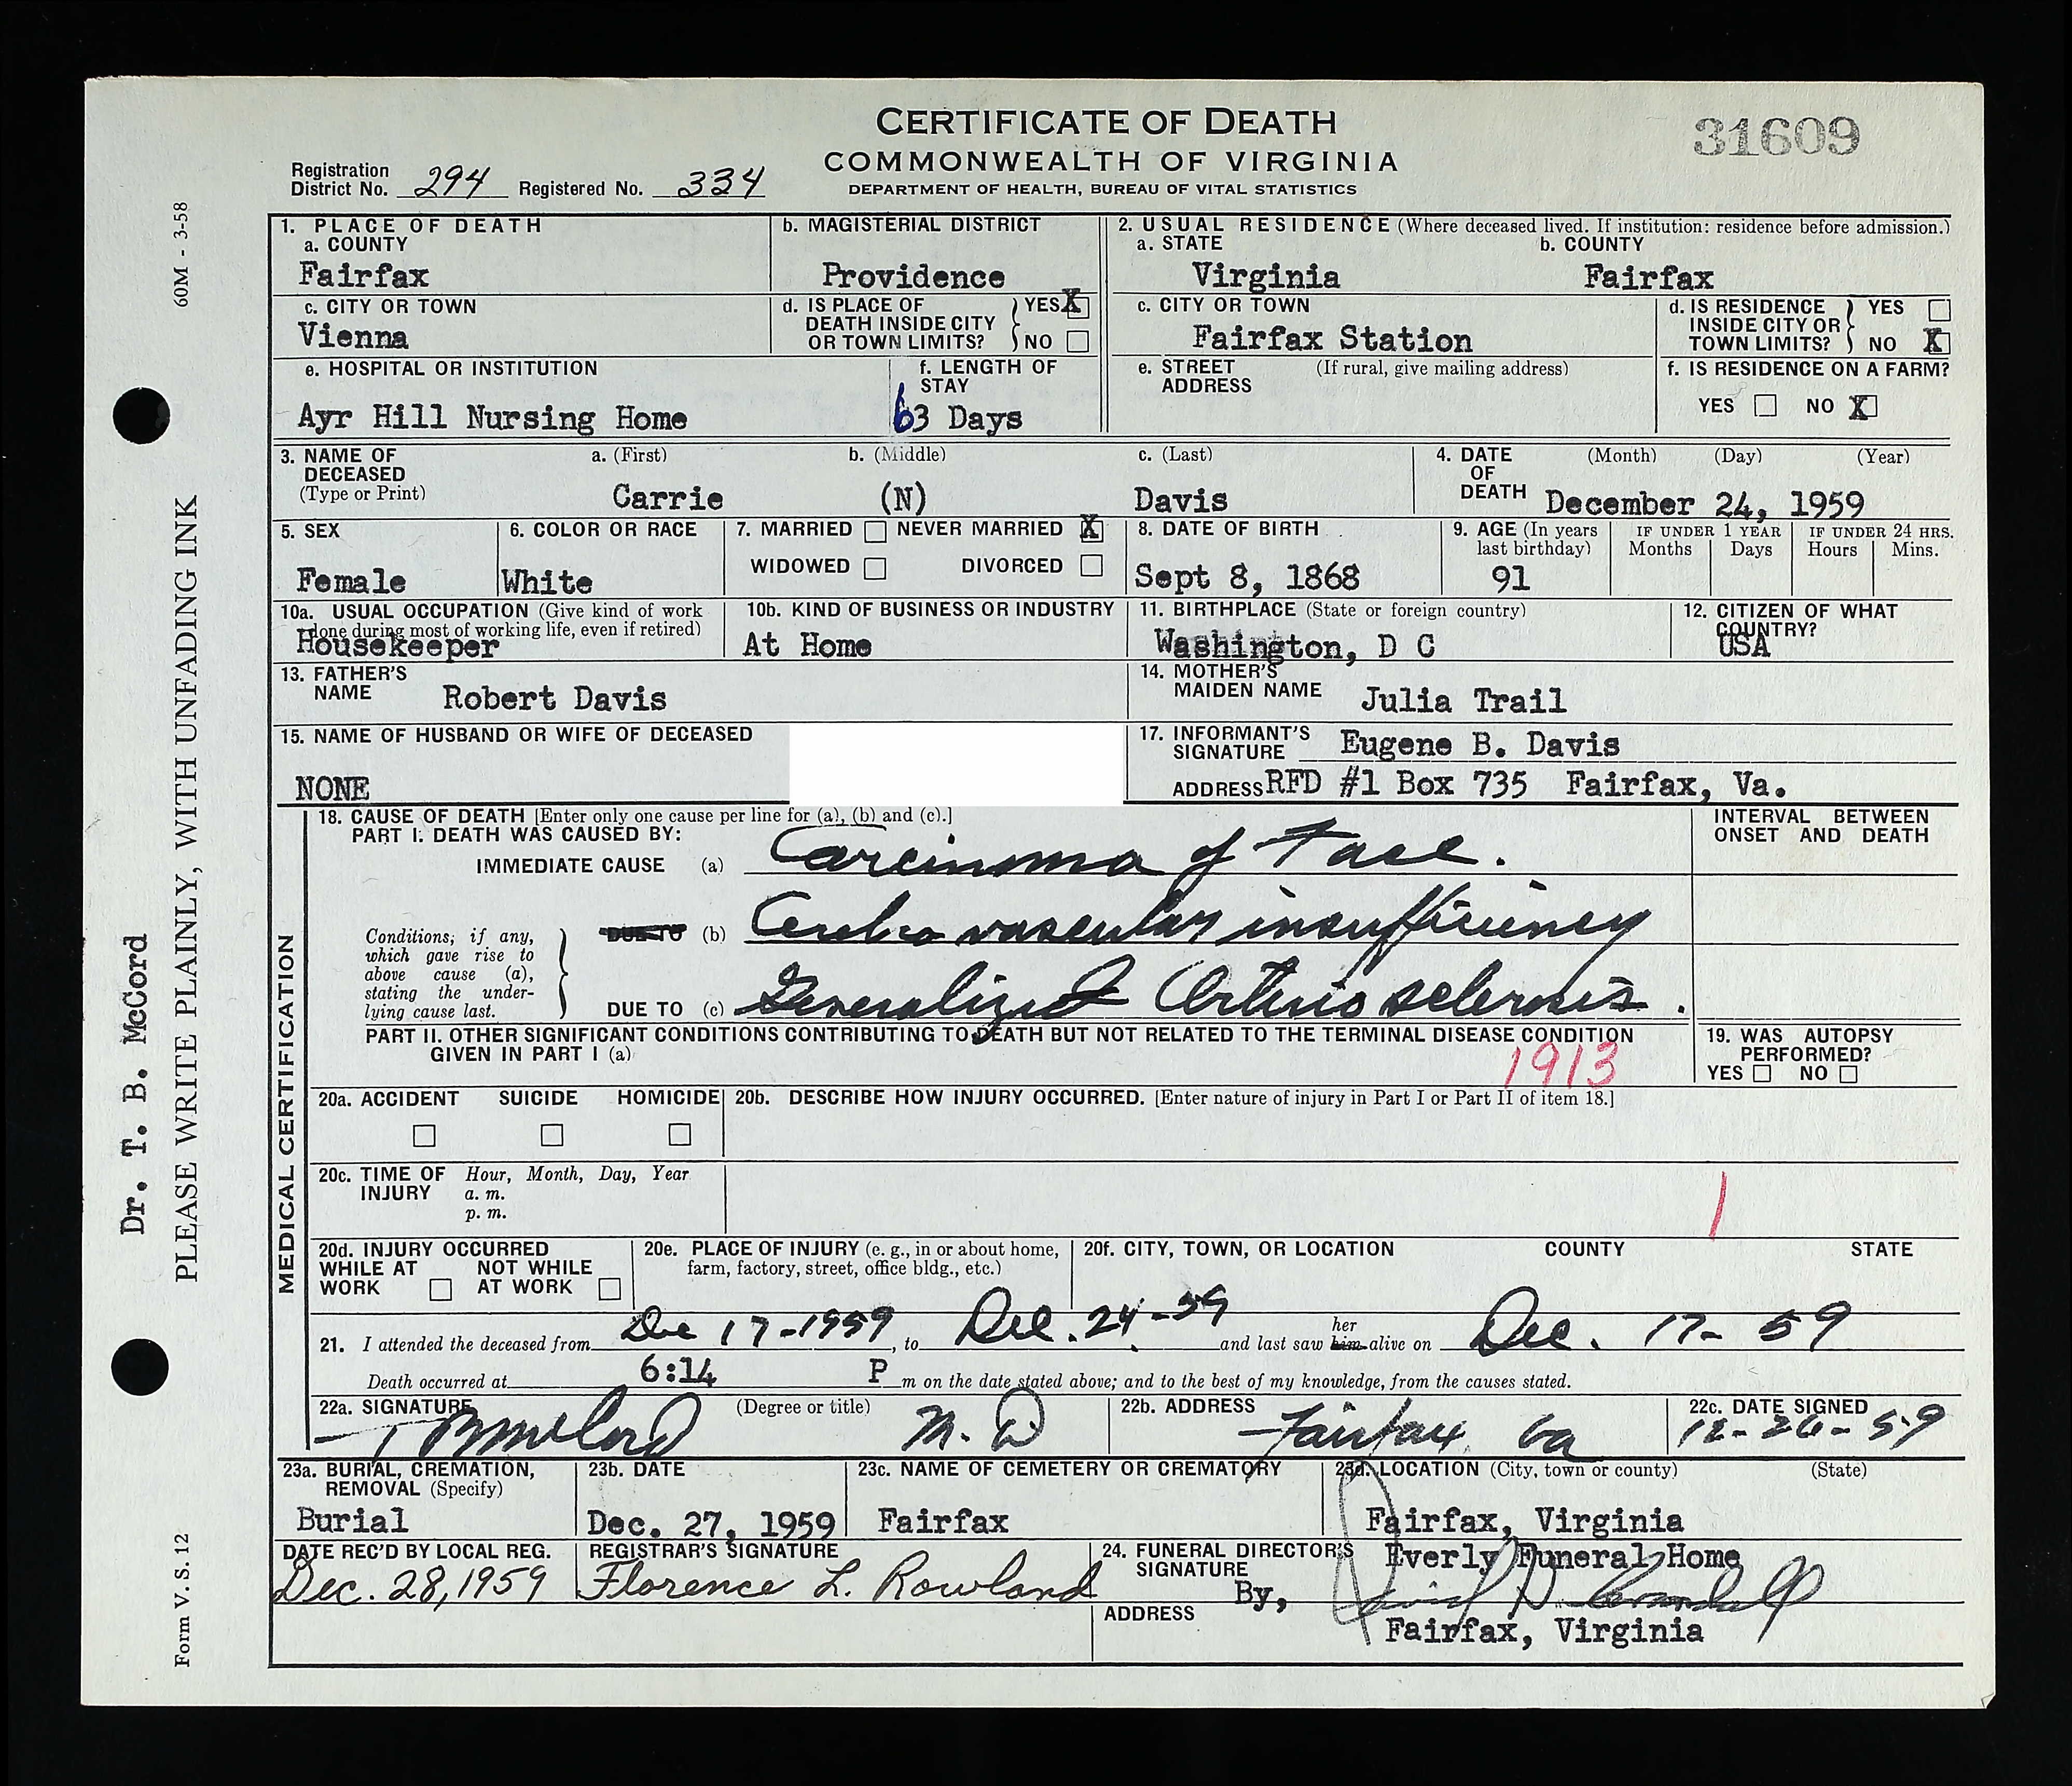 CERTIFICATE OF DEATH
COMMONWEALTH OF VIRGINIA
DEPARTMENT OF HEALTH, BUREAU OF VITAL STATISTICS
31609
Registration
District No. 294 Registered No. 334
60M - 3-58
Dr. T. B. McCord
PLEASE WRITE PLAINLY, WITH UNFADING INK
Form V. S. 12
1. PLACE OF DEATH
a. COUNTY
Fairfax
b. MAGISTERIAL DISTRICT
Providence
2. USUAL RESIDENCE (Where deceased lived. If institution: residence before admission.)
a. STATE b. COUNTY
Virginia Fairfax
c. CITY OR TOWN
Vienna
d. IS PLACE OF DEATH INSIDE CITY OR TOWN LIMITS? YES X NO
c. CITY OR TOWN
Fairfax Station
d. IS RESIDENCE INSIDE CITY OR TOWN LIMITS? YES NO X
e. HOSPITAL OR INSTITUTION
Ayr Hill Nursing Home
f. LENGTH OF STAY
63 Days
e. STREET ADDRESS (If rural, give mailing address)
f. IS RESIDENCE ON A FARM?
YES NO X
3. NAME OF DECEASED (Type or Print)
a. (First) b. (Middle) c. (Last)
Carrie (N) Davis
4. DATE OF DEATH (Month) (Day) (Year)
December 24, 1959
5. SEX
Female
6. COLOR OR RACE
White
7. MARRIED NEVER MARRIED X
WIDOWED DIVORCED
8. DATE OF BIRTH
Sept 8, 1868
9. AGE (In years last birthday)
91
IF UNDER 1 YEAR
Months Days
IF UNDER 24 HRS.
Hours Mins.
10a. USUAL OCCUPATION (Give kind of work done during most of working life, even if retired)
Housekeeper
10b. KIND OF BUSINESS OR INDUSTRY
At Home
11. BIRTHPLACE (State or foreign country)
Washington, D C
12. CITIZEN OF WHAT COUNTRY?
USA
13. FATHER'S NAME Robert Davis
14. MOTHER'S MAIDEN NAME Julia Trail
15. NAME OF HUSBAND OR WIFE OF DECEASED
NONE
17. INFORMANT'S SIGNATURE Eugene B. Davis
ADDRESS RFD #1 Box 735 Fairfax, Va.
MEDICAL CERTIFICATION
18. CAUSE OF DEATH [Enter only one cause per line for (a), (b) and (c).]
PART I. DEATH WAS CAUSED BY:
INTERVAL BETWEEN ONSET AND DEATH
IMMEDIATE CAUSE (a) Carcinoma of Face.
Conditions, if any, which gave rise to above cause (a), stating the underlying cause last.
DUE TO (b) Cerebro vascular insufficiency
DUE TO (c) Generalized Arterio sclerosis.
PART II. OTHER SIGNIFICANT CONDITIONS CONTRIBUTING TO DEATH BUT NOT RELATED TO THE TERMINAL DISEASE CONDITION GIVEN IN PART I (a)
1913
19. WAS AUTOPSY PERFORMED?
YES NO
20a. ACCIDENT SUICIDE HOMICIDE
20b. DESCRIBE HOW INJURY OCCURRED. [Enter nature of injury in Part I or Part II of item 18.]
20c. TIME OF INJURY Hour, Month, Day, Year
a. m.
p. m.
1
20d. INJURY OCCURRED
WHILE AT WORK NOT WHILE AT WORK
20e. PLACE OF INJURY (e. g., in or about home, farm, factory, street, office bldg., etc.)
20f. CITY, TOWN, OR LOCATION COUNTY STATE
21. I attended the deceased from Dec 17-1959, to Dec. 24-59 and last saw her him alive on Dec. 17-59
Death occurred at 6:14 P m on the date stated above; and to the best of my knowledge, from the causes stated.
22a. SIGNATURE (Degree or title)
T B McCord M. D
22b. ADDRESS
Fairfax Va
22c. DATE SIGNED
12-26-59
23a. BURIAL, CREMATION, REMOVAL (Specify)
Burial
23b. DATE
Dec. 27, 1959
23c. NAME OF CEMETERY OR CREMATORY
Fairfax
23d. LOCATION (City, town or county) (State)
Fairfax, Virginia
DATE REC'D BY LOCAL REG.
Dec. 28, 1959
REGISTRAR'S SIGNATURE
Florence L. Rowland
24. FUNERAL DIRECTOR'S SIGNATURE
Everly Funeral Home
By,
ADDRESS
Fairfax, Virginia